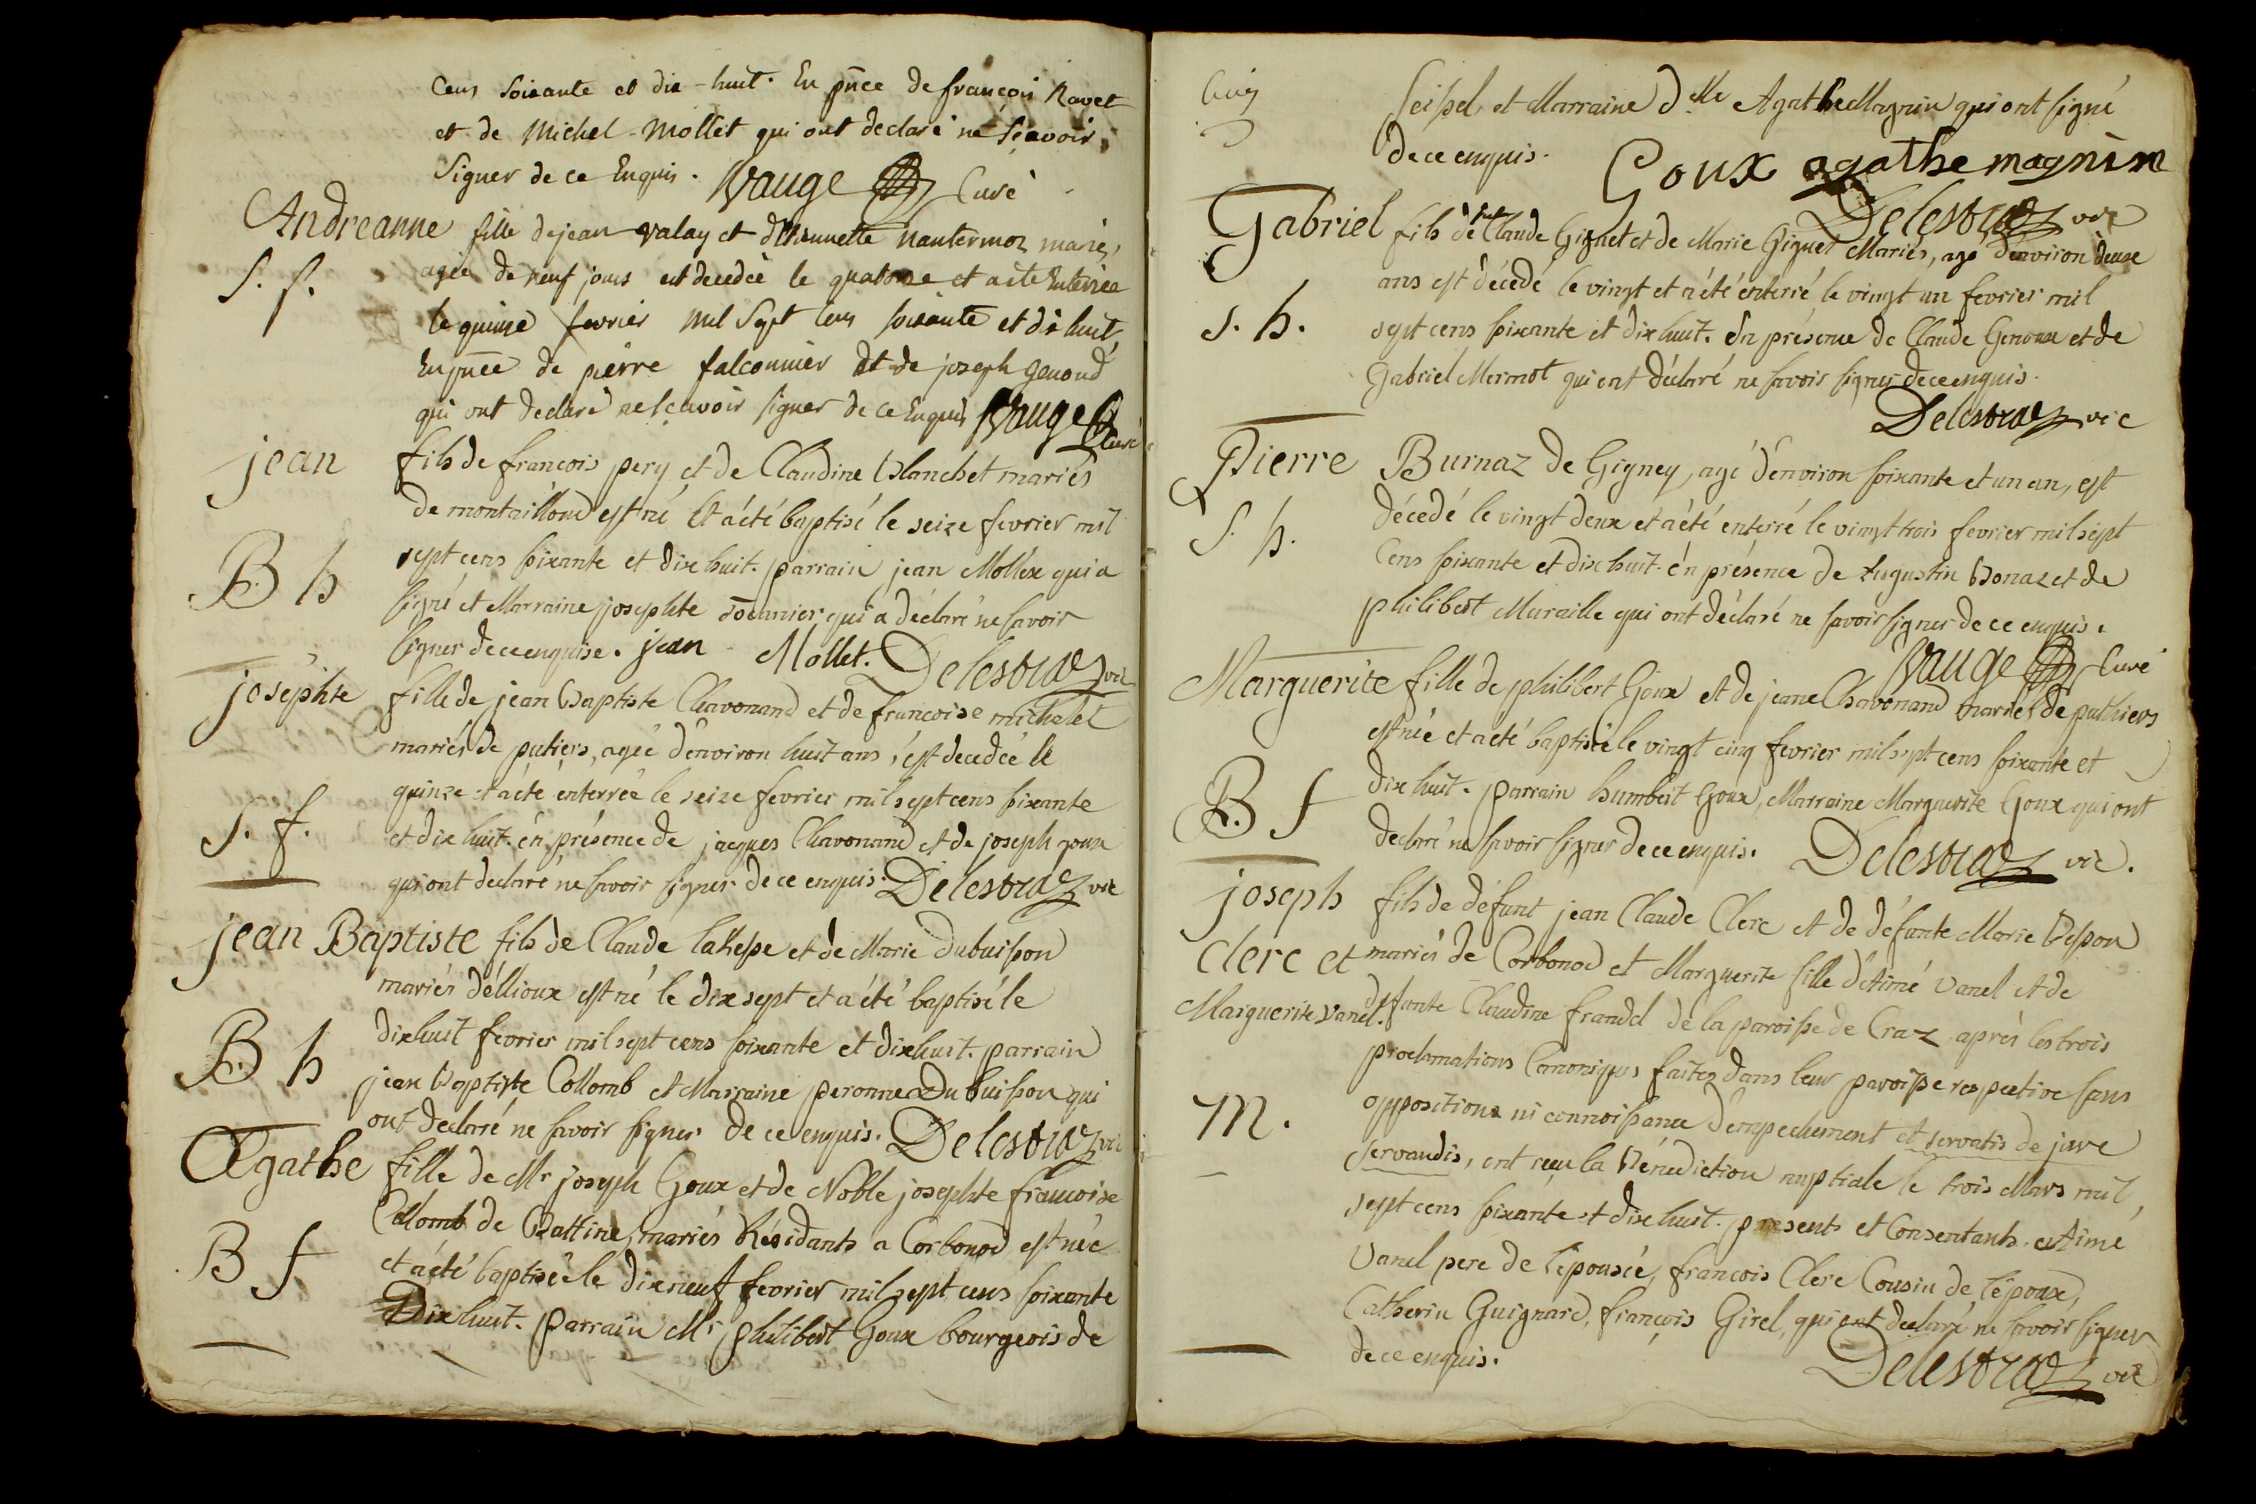 cens soixante et dix-huit. En pñce de françois Ravet
et de Michel Mollet qui ont declaré ne sçavoir
signer de ce Enquis. Vauge Curé
Andreanne fille de jean valay et d'Etiennette nantermoz mariés,
S. f. agée de neuf jours est decedée le quatorze et a eté Enterrée
le quinze fevrier mil sept cens soixante et dix huit,
En pñce de pierre falconnier et de joseph genoud
qui ont declaré ne scavoir signer de ce Enquis Vauge Curé
jean fils de françois pery et de Claudine Blanchet mariés
de montailloud est né et a été baptisé le seize fevrier mil
B h sept cens soixante et dix huit. parrain jean Mollex qui a
signé et Marraine josephte qui a déclaré ne savoir
signer de ce enquise. jean Mollet. Delestraz vic
josephte fille de jean Baptiste Chavonand et de francoise michelet
mariés de putiers, agée d'environ huit ans, est decedée le
quinze et a été enterrée le seize fevrier mil sept cens soixante
S. f. et dix huit. en présence de jacques Chavonand et de joseph goux
qui ont declaré ne savoir signer de ce enquis. Delestraz vic
jean Baptiste fils de Claude Lahesse et de Marie Dubuisson
mariés d'éllioux est né le dix sept et a été baptisé le
B h dixhuit fevrier mil sept cens soixante et dixhuit. parrain
jean Baptiste Collomb et Marraine peronne Du buisson qui
ont declaré ne savoir signer de ce enquis. Delestraz vic
Agathe fille de Mr joseph Goux et de Noble josephte francoise
Collomb de Battine, mariés Résidants a Corbonod est née
B f et a été baptisée le dix neuf fevrier mil sept cens soixante
Dixhuit. parrain Mr philibert Goux bourgeois de
Cinq
Seissel, et Marraine d.lle Agathe Magnin qui ont signé
de ce enquis. Goux agathe magnin
Delestraz vic
Gabriel fils de fut Claude Giguet et de Marie Giguet Mariés, agé d'environ deux
ans est décedé le vingt et a été enterré le vingt un fevrier mil
S. h. sept cens soixante et dix huit. En présence de Claude Genoux et de
Gabriel Mermot qui ont déclaré ne savoir signer de ce enquis.
Delestraz vic
Pierre Burnaz de Gigney, agé d'environ soixante et un an, est
décedé le vingt deux et a été enterré le vingt trois fevrier mil sept
S. h. Cens soixante et dix huit. én présence de Augustin Bonaz et de
philibert Muraille qui ont déclaré ne savoir signer de ce enquis.
Vauge Curé
Marguerite fille de philibert Goux et de jeane Chavonand mariés de puthiers
est née et a été baptisée le vingt cinq fevrier mil sept cens soixante et
B. f dix huit. parrain humbert Goux, Marraine Marguerite Goux qui ont
declaré ne savoir signer de ce enquis. Delestraz vic.
joseph fils de défunt jean Claude Clerc et de défunte Marie Besson
Clerc et mariés de Corbonod et Marguerite fille d'Aimé Vanel et de
Marguerite Vanel. défunte Claudine frandel de la paroisse de Craz après les trois
proclamations Canoniques faites dans leur paroisse respective sans
M. oppositions ni connoissance d'empechement et servatis de jure
servandis, ont reçu la Bénédiction nuptiale le trois Mars mil
sept cens soixante et dix huit. presents et Consentants. Aimé
Vanel pere de l'épousée, francois Clerc Cousin de l'époux,
Catherin Guignard, françois Girel, qui ont declaré ne savoir signer
de ce enquis. Delestraz vic